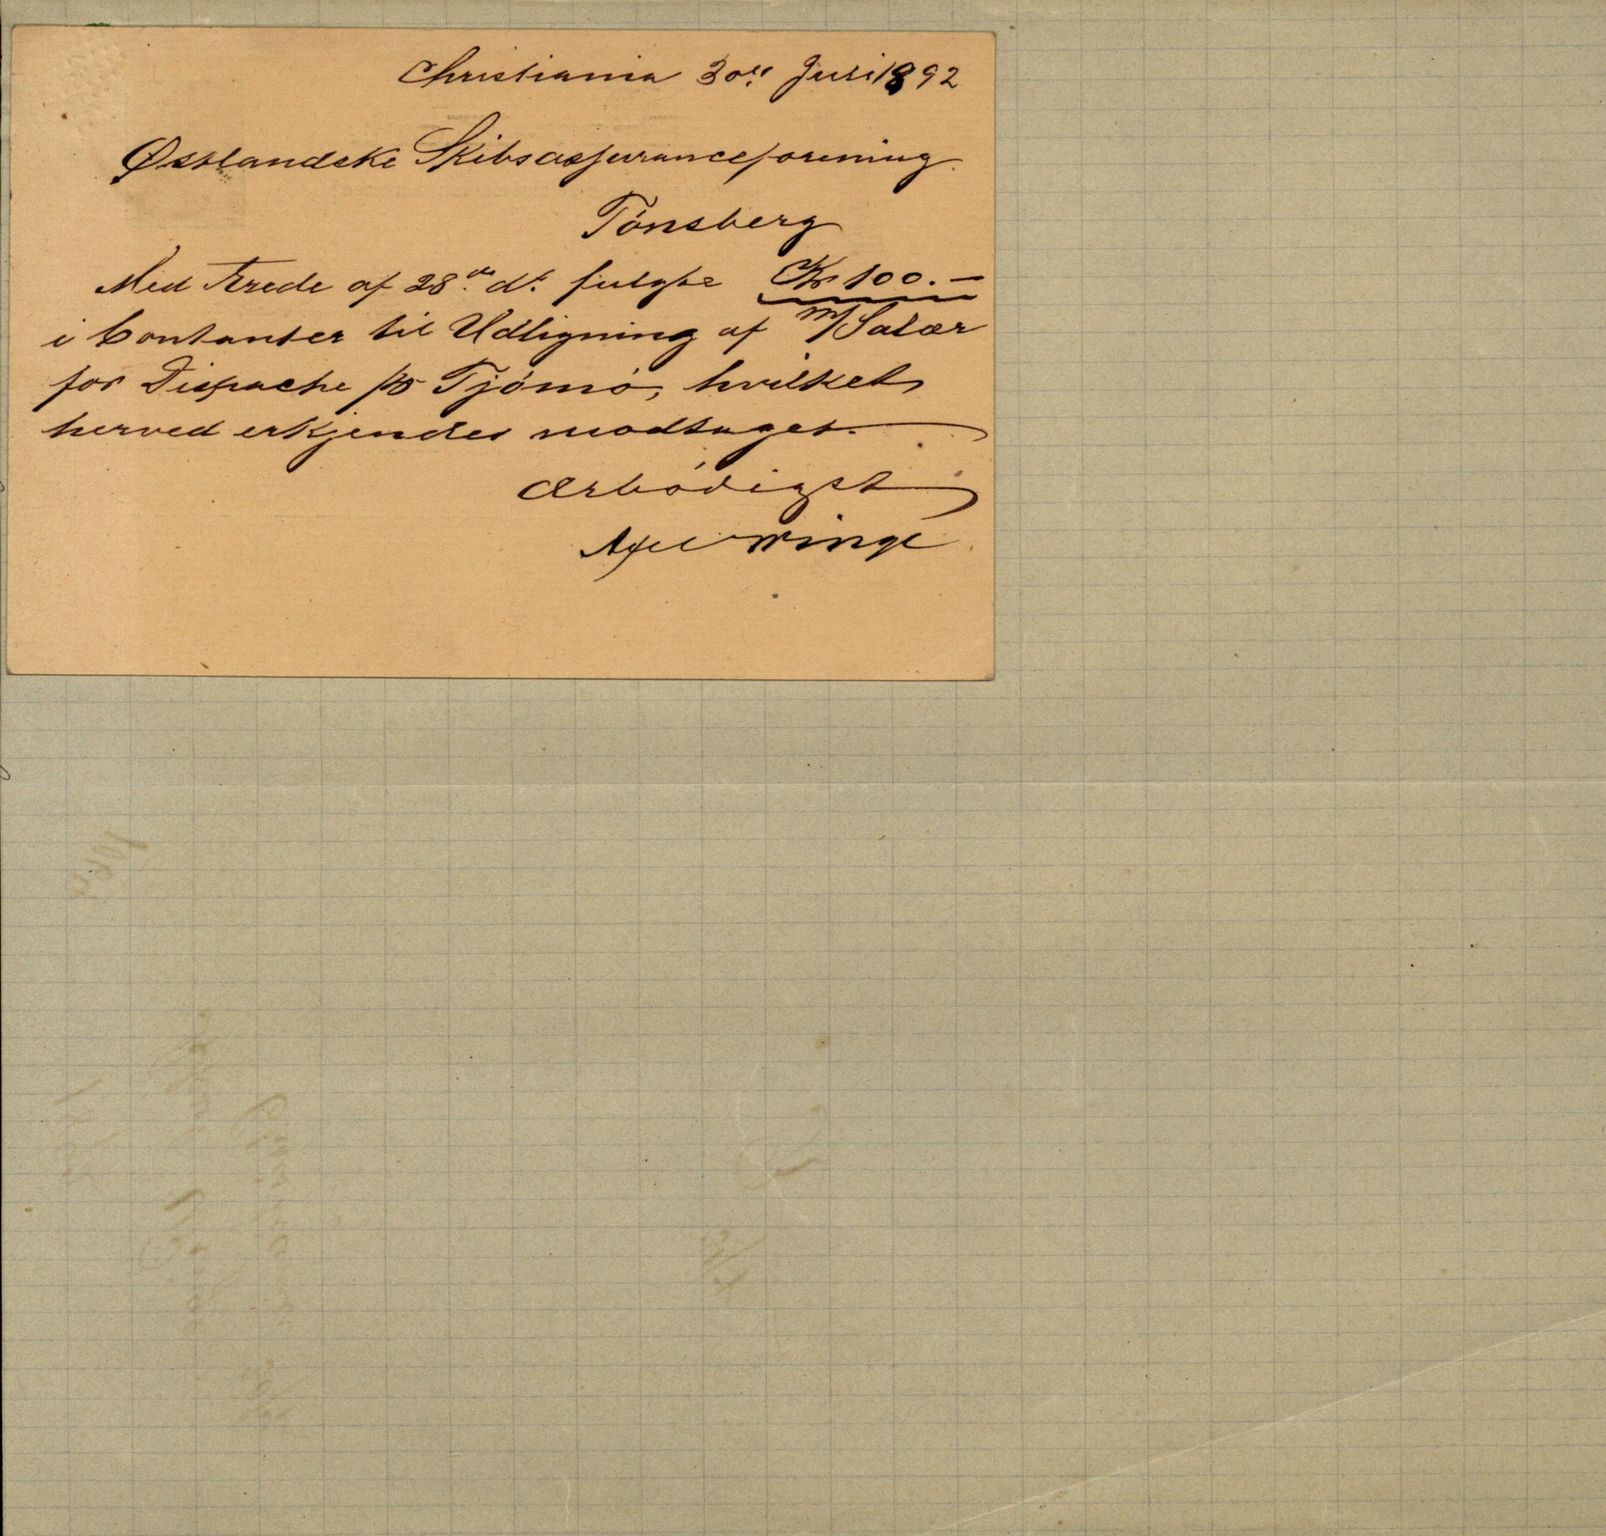 Christiania 30te Juli 1892
Østlandske Skibsassuranceforening
Tönsberg
Med Ærede af 28de ds fulgte Kr 100.-
i Contanter til Udligning af m/Salær
for Dispache pr Tjömö, hvilket
herved erkjendes modtaget.
Ærbödigst
Axel Winge